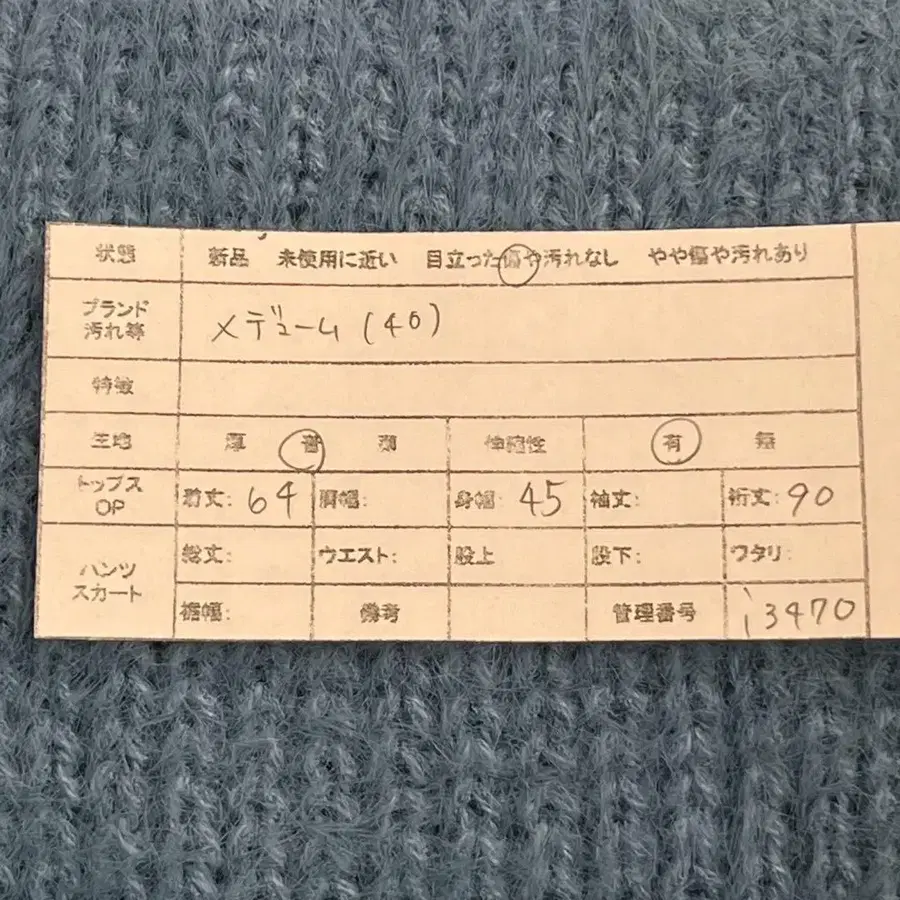 状態 新品 未使用に近い 目立った傷や汚れなし やや傷や汚れあり
ブランド
汚れ等 メデューム(40)
特徴
生地 厚 普 薄 伸縮性 有 無
トップス
OP 着丈: 64 肩幅: 身幅: 45 袖丈: 裄丈: 90
パンツ
スカート 総丈: ウエスト: 股上 股下: ワタリ:
裾幅: 備考 管理番号 i3470